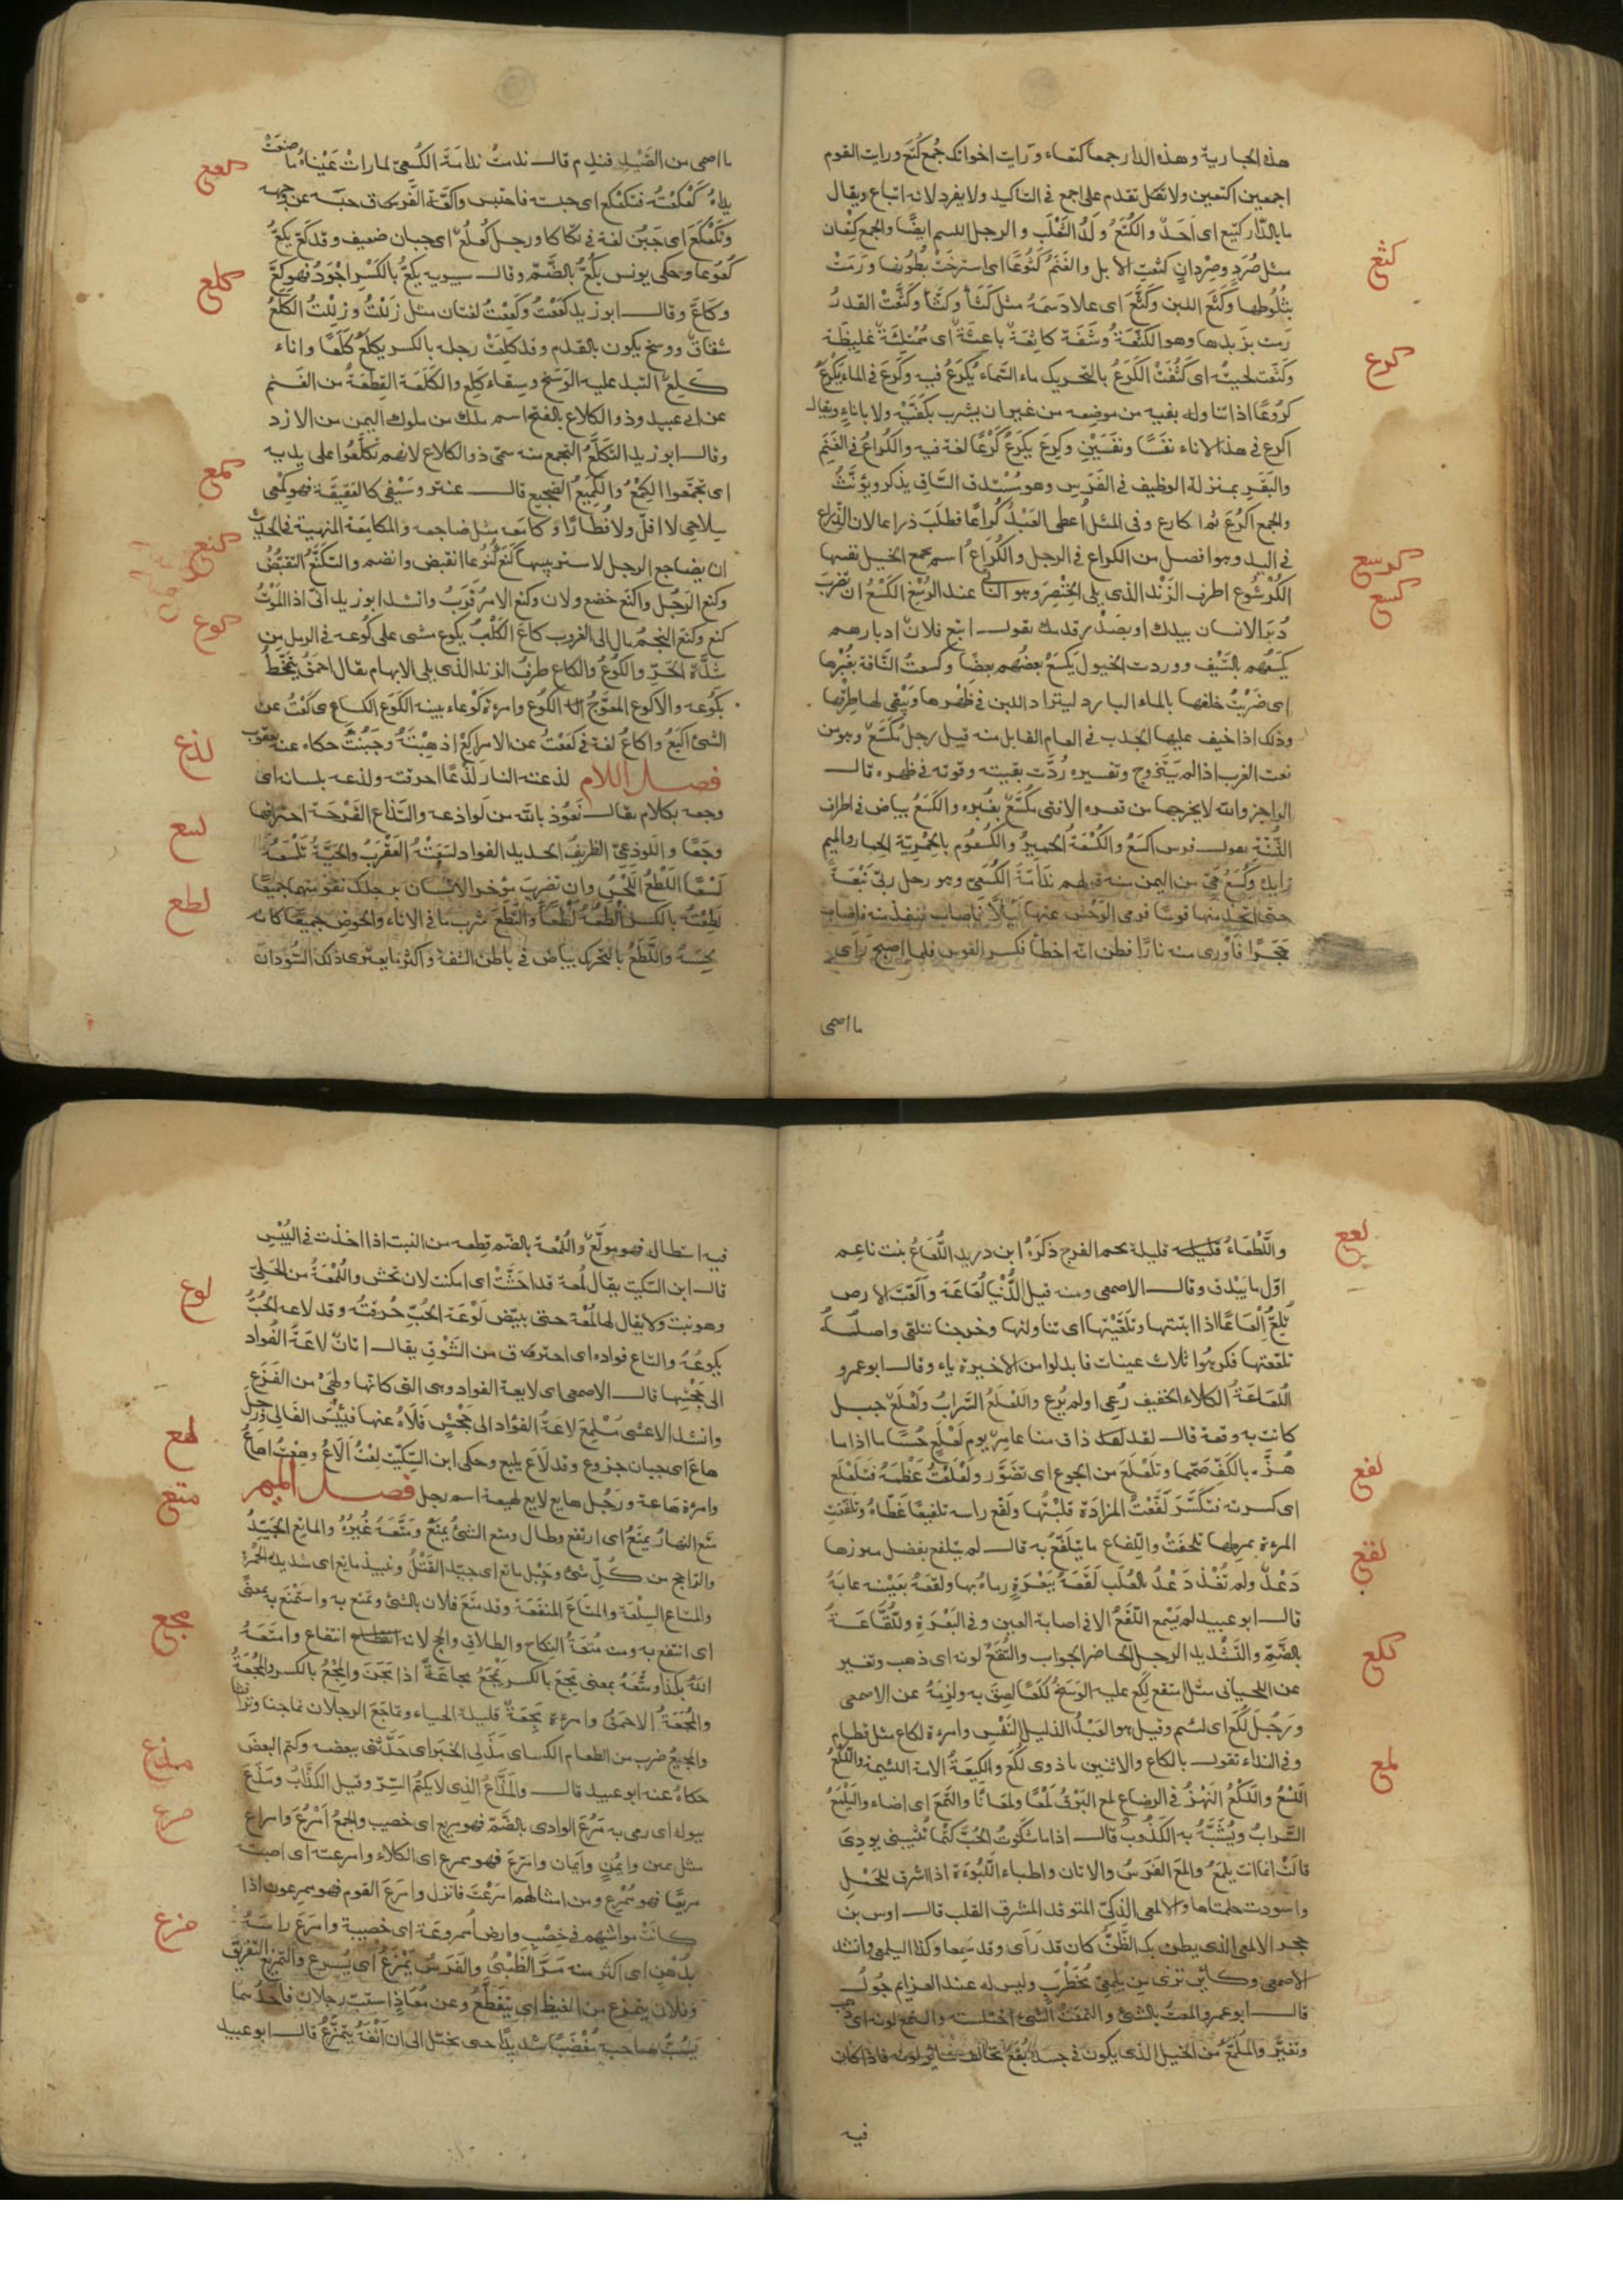 هذه الجبارية وهذه الدار جمعا كتعاء ورايت اخواتك جُمع كُتع ورايت القوم
اجمعين اكتعين ولا تقل تقدم على اجمع في التاكيد ولا يفرد لانه اتباع ويقال
ما بالدّار كتيع اى اَحَدٌ والكُتَعُ وَلَدُ الثعْلَب و الرجل اللىيم ايضًا والجمع كِتْعان
مثل صُرَدٍ وصِرْدانٍ كثعت الابل والغَنَمُ كُثُوعًا اى استرخَتْ بطُونها ورَمَتْ
بثُلُوطها وكَثَع اللبن وكَثَّعَ اى علا دَسَمَهُ مثل كَثَأ وكَثَّأ وكَثَّعَتْ القدرُ
رمت بزَبدها وهو الكُثْعَةُ وشَفَة كاثِعَة باعثَة اى مُمْتلِئَة غليظة
وكثّعت لحيته اى كَثُفَتْ الكَرَعُ بالتحريك ماء السّماء يُكرَعُ فيه وكَرَعَ في الماءِ يَكْرَعُ
كرُوعًا اذا تناوله بفيه من موضعه من غير ان يشرب بكَفّيْه ولا باناءٍ ويقال
اكرع في هذا الاناء نفسًا ونفسَيْنِ وكَرِعَ يكرَعُ كَرْعًا لغة فيه والكُراعُ في الغَنَم
والبقَرِ بمنزلة الوظيف في الفَرَس وهو مُسْتَدق السّاق يذكر ويؤنّثُ
والجمع اكرُعَ ثم اكارع وفي المثل اُعطى العَبْدُ كُراعًا فطلَبَ ذراعا لان الذراع
في اليد وهو افضل من الكراع في الرجل والكُراعُ اسم يجمع الخيل نفسها
الكُرْسُوع اطرف الزَنْد الذى يلى الخِنْصِر وهو الناتى عند الرسْغ الكَسْعُ ان تضرِبَ
دُبَرَ الانسان بيدك او بصَدْر قدمك يقول اتبع فلانٌ ادبارهم
يكسَعُهم بالسَّيْف ووردت الخيول يَكْسَعُ بعضُهم بعضًا وكسعتُ النّاقة بغُبْرها
اى ضَرَبْتُ خلفها بالماء البارد ليترادّ اللبن في ظهرها ويَبْقى لها طِرْقها
وذلك اذا خيف عليها الجَدْب في العام القابل منه قيل رجل مُكَسَّعٌ وهو من
نعت العَزب اذا لم يتزوج وتفسيره رُدَّت بقيته وقوته في ظهره قال
الراجز والله لا يخرجها من قعره الا فتى مُكَسَّعٌ بغُبْره والكَسَعُ بياض في اطراف
الثُّنّة يقول فرس اكسَعُ والكُسْعَةُ الحمير والكُسْعُوم بالحِمْيَرية الحمار والميم
زايدة وكُسَعُ حَىّ من اليمن منه قولهم نَدَامَةُ الكُسَعِىّ وهو رجل ربّى نَبْعَةً
حتى اتخذ منها قوسًا فرمى الوَحْش عنها ليْلًا فاصاب فنفذ منه فاصاب
حَجَرًا فاَوْرى منه نارًا فظن انه اخطأ فكسر القوس فلما اصبح رَأى
ما اصمى
كثع
كرع
كرسع
كسع
ما اصمى من الصَّيْد فندِم قال ندمتُ ندَامَةَ الكُسَعِىّ لما راتْ عَيْناهُ ما صنعَتْ
يداهُ كَعْكَعْتُه فتكَعْكع اى حبسته فاحتبس واكعّه الفَرَق حبَسَه عن وجهه
وتَكَعْكَعَ اى جَبُنَ لغة في تكأكأ ورجل كُعْلُعٌ اى جبان ضعيف وقد كعّ يكِعُّ
كُعُوعا وحكى يونس يكُعُّ بالضَّمّ وقال سيبويه يكِعُّ بالكَسْرِ اجْوَدُ فهو كَعٌّ
وكَاعٌّ وقال ابو زيد كَعَعْتُ وكَعِعْتُ لغتان مثل زَلَلْتُ وزَلِلْتُ الكَلَعُ
شقاق ووسخ يكون بالقدم وقد كلِعَتْ رجله بالكسر تكلَعُ كَلَعًا واناء
كَلِعٌ التبد عليه الوَسَخ وسِقاء كَلِع والكَلَعَة القِطْعَةُ من الغَنم
عن ابى عبيد وذو الكلاع بالفتح اسم ملك من ملوك اليمن من الازد
وقال ابو زيد التكلُّعُ التجمع منه سمّى ذو الكلاع لانهم تكلّعوا على يديه
اى تجمَّعوا الكِمْعُ والكَمِيعُ الضجيع قال عنتر وسَيْفى كالعَقِيقة فهو كِمْعى
سلاحى لا افلّ ولا فُطارًا وكامَعه مثل ضاجعه والمكامَعَة المنهية في الحديث
ان يضاجع الرجل لا ستر بينهما كَنَع كُنُوعا انقبض وانضم والتكنُّعُ التقبُّضُ
وكنع الرَجُل واكنَع خضع ولان وكنع الامرُ قرُبَ وانشد ابو زيد انى اذا المَوْتُ
كنع وكنع النجمُ مال الى الغروب كاعَ الكَلْبُ يكوع مشى على كُوعه في الرمل من
شدّة الحَرّ والكُوعُ والكاع طرفُ الزند الذى يلى الابهام يقال احمَقُ يتمخّطُ
بكُوعه والاكوع المعوَّجُ الكُوع وامرءة كَوْعاء بينه الكَوَع الكسائى كَعْتُ عن
الشئ اكيَعُ واكاعُ لغة في كععْتُ عن الامر اكِعُّ اذ هِبْتَهُ وجَبُنْتَ حكاه عنه يعقوب
فصل اللام لذعته النار لذْعًا احرقته ولذعه بلسانه اى
وجعه بكلام يقال نعُوذ بالله من لَواذعه والتذاع القَرْحَة احتراقها
وجَعًا واللوذعىّ الظريفُ الحديد الفواد لسَعَتْه العَقْرَبُ والحَيَّةُ تَلْسَعُهُ
لَسْعًا اللَطْعُ اللَحْسُ وان تضرِبَ مؤخر الانسان برجلك تقول منهما جميعًا
لَطِعْتُهُ بالكسر اَلْطَعُهُ لَطْعًا والتَطَعَ شرب ما في الاناء والحوض جميعًا كانه
لحِسَهُ واللَّطَعُ بالتحَرك بياض في باطن الشفة واكثر ما يعترى ذلك السُّودان
كعع
كلع
كمع
كنع
كوع
لذع
لسع
لطع
واللَّطْعَاءُ قليلة لحم الفرج ذكَرَهُ ابن دريد اللُّعَاعُ نبت ناعِم
اوّل ما يَبْدو وقال الاصمعى ومنه قيل الدُّنْيا لُعَاعَة وألَعَّت الارض
تُلِعُّ إلعَاعًا اذا انبتتها وتلَعَّيْتها اى تناولتها وخرجنا نتلعّى واصلُه
تلعّعتها فكرهُوا ثلاث عينات فابدلوا من الاخيرة ياء وقال ابو عمرو
اللعَاعَةُ الكلاء الخفيف رُعى اولم يُرع واللعْلَعُ السّرابُ ولَعْلَع جبل
كانت به وقعة قال لقد ذاق منا عامِرٌ يوم لَعْلَع حُسَامًا اذا ما
هُزَّ بالكَفِّ صمّما وتلَعْلَع من الجوع اى تضَوَّر ولَعْلَعْتُ عَظْمَهُ فتلَعْلَع
اى كسرته فتكَسَّرَ لَفَّعْتُ المزادَة قلَبْتُها ولفّع راسه تلفيعًا غَطّاهُ وتلفّعَت
المرءة بمرطها تلحّفَتْ واللِّفاع ما يتلَفّعُ به قال لم تتلفع بفضل ميزرها
دَعْدٌ ولم تُغْذَ دَعْدُ بالعُلَب لَقَعَهُ ببَعْرَةٍ رماهُ بها ولقعهُ بعَيْنه عابهُ
قال ابو عبيد لم يُسْمَع اللّقْعُ الا في اصابة العين وفي البَعْرَةِ واللُّقَّاعَةُ
بالضَّمّ والتَّشْديد الرجل الحاضر الجواب والتُقِعَ لونه اى ذهب وتغير
عن اللحيانى مثل امتقع لَكِعَ عليه الوَسَخُ لَكَعًا لصِقَ به ولزِمَهُ عن الاصمعى
ورجُل لُكَع اى لئيم وقيل هو العَبْدُ الذليل النَّفْسِ وامرءة لكاع مثل قطام
وفي النداء تقول يالكاع والاثنين ياذوى لُكَعَ واللكيعَةُ الامة اللئيمة واللَّكْعُ
اللَّسْعُ واللَّكْعُ النَهْزُ في الرضاع لمع البَرْقُ لَمْعًا ولمَعَانًا والتَمَعَ اى اضاء واليَلْمَعُ
السَّرابُ ويُشَبَّهُ به الكَذُوبُ قال اذا ما شكَوْتُ الحُبَّ كَيْما تُثيبنى بودّى
قالَتْ انما انت يلمَعُ والمَعَ الفَرَسُ والاتان واطباء اللَّبُؤَة اذا اشرق للحَمْل
واسْودّت حلمتاها والالمعى الذكِىّ المتوقد المشرق القلب قال اوس بن
حجر الالمعى الذى يظن بك الظَّنَّ كان قد رَأى وقد سمعا وكذا اليلمعى وانشد
الاصمعى وكاين ترى من يلمعىّ مُحَظْرَبٍ وليس له عند العزايم جُولُ
قال ابو عمرو المعتُ بالشئ والتمَعْتُ الشئ اختلسته والتمع لونه اى ذهب
وتغيَّر والمُلَمَّعُ من الخيل الذى يكون في جسده بُقَعٌ تخالف سائر لونه فاذا كان
فيه
لعع
لفع
لقع
لكع
لمع
فيه استطالة فهو مولَّع واللُّمْعَة بالضَّم قطعه من النبت اذا اخذت في اليُبْس
قال ابن السّكيت يقال لُمعة قد احَشَّتْ اى امكنت لان تحش واللُّمْعَةُ من الحَلِىّ
وهو نبت ولا يقال لها لُمْعَة حتى تبيّض لَوْعَة الحُبّ حُرقتُه وقد لاعه الحُبُّ
يَلُوعُهُ والتاع فواده اى احترق من الشَوْق يقال اتانٌ لاعَةُ الفُواد
الى جَحْشها قال الاصمعى اى لايعة الفواد وهى التى كانها ولْهَىٰ من الفَزَع
وانشد الاعشى مُلْمِع لاعَةُ الفؤاد الى جَحْشٍ فَلاهُ عنها فبئسَ الفالى ورجُل
هاعٌ اى جبان جزوع وقد لاعَ يليع وحكى ابن السّكّيت لِعْتُ ألاعُ وهِعْتُ اهاعُ
وامرءة هاعة ورَجُل هايع لايع لهيعة اسم رجل فصل الميم
متَع النهارُ يمتَعُ اى ارتفع وطال ومتع الشئُ يمتَعُ ومتَّعَهُ غُيرُهُ والماتع الجَيّدُ
والرّاجح من كُلّ شئ وحَبْل ماتع اى جيّد الفَتْلُ ونبيذ ماتع اى شديد الحُمْرة
والمتاع السِلْعَة والمتاعَ المنفَعَة وقد متَعَ فلان بالشئ وتمتع به واستمْتَع به بمعنى
اى انتفع به ومنه مُتْعَةُ النِكاح والطلاق والحج لانه انتفاع وامتَعَهُ
اللهُ بكذا ومتَّعَهُ بمعنى مَجِعَ بالكسر يَمْجَعُ مجاعَةً اذا تمجّن والمِجْعُ بالكسر والمُجَعَةُ
والمُجْعَةُ الاحمَقُ وامرءة مَجِعَةٌ قليلة الحياء وتماجَعَ الرجلان تماجنا وترافثا
والمجيعُ ضرب من الطعام الكساى مذَع لى الخبَر اى حَدَّثنى ببعضه وكتم البعضَ
حكاهُ عنه ابو عبيد قال والمَذَّاعُ الذى لا يكتُمُ السِرّ وقيل الكذّابُ ومذَعَ
ببوله اى رمى به مَرُعَ الوادى بالضَّمّ فهو مريع اى خصيب والجمعُ اَمْرُعُ وامراع
مثل يمين وايمُنٍ وايمانٍ وامرَعَ فهو ممرع اى الكلاء وامرعته اى اصبته
مريعًا فهو مُمْرِع ومن امثالهم امرَعْتَ فانزل وامرَع القوم فهو ممرعون اذا
كانَتْ مواشيهم في خِصْبٍ وارض اُمروعَة اى خصيبة وامرَعَ راسَهُ
بدُهْن اى اكثر منه مَرَّ الظَبْىُ والفَرَسُ يَمْزَعُ اى يُسرع والتمزيع التفريق
وفلان يتمزع من الغيظ اى يتقطَّعُ وعن مُعَاذٍ استَبّ رجلان فاَحَدُهما
يَسُبُّ صاحبه مُغْضَبًا شديدًا حتى يخيّل الى ان انْفَهُ يتَمَزَّعُ قال ابو عبيد
لوع
لهع
متع
مجع
مذع
مرع
مزع